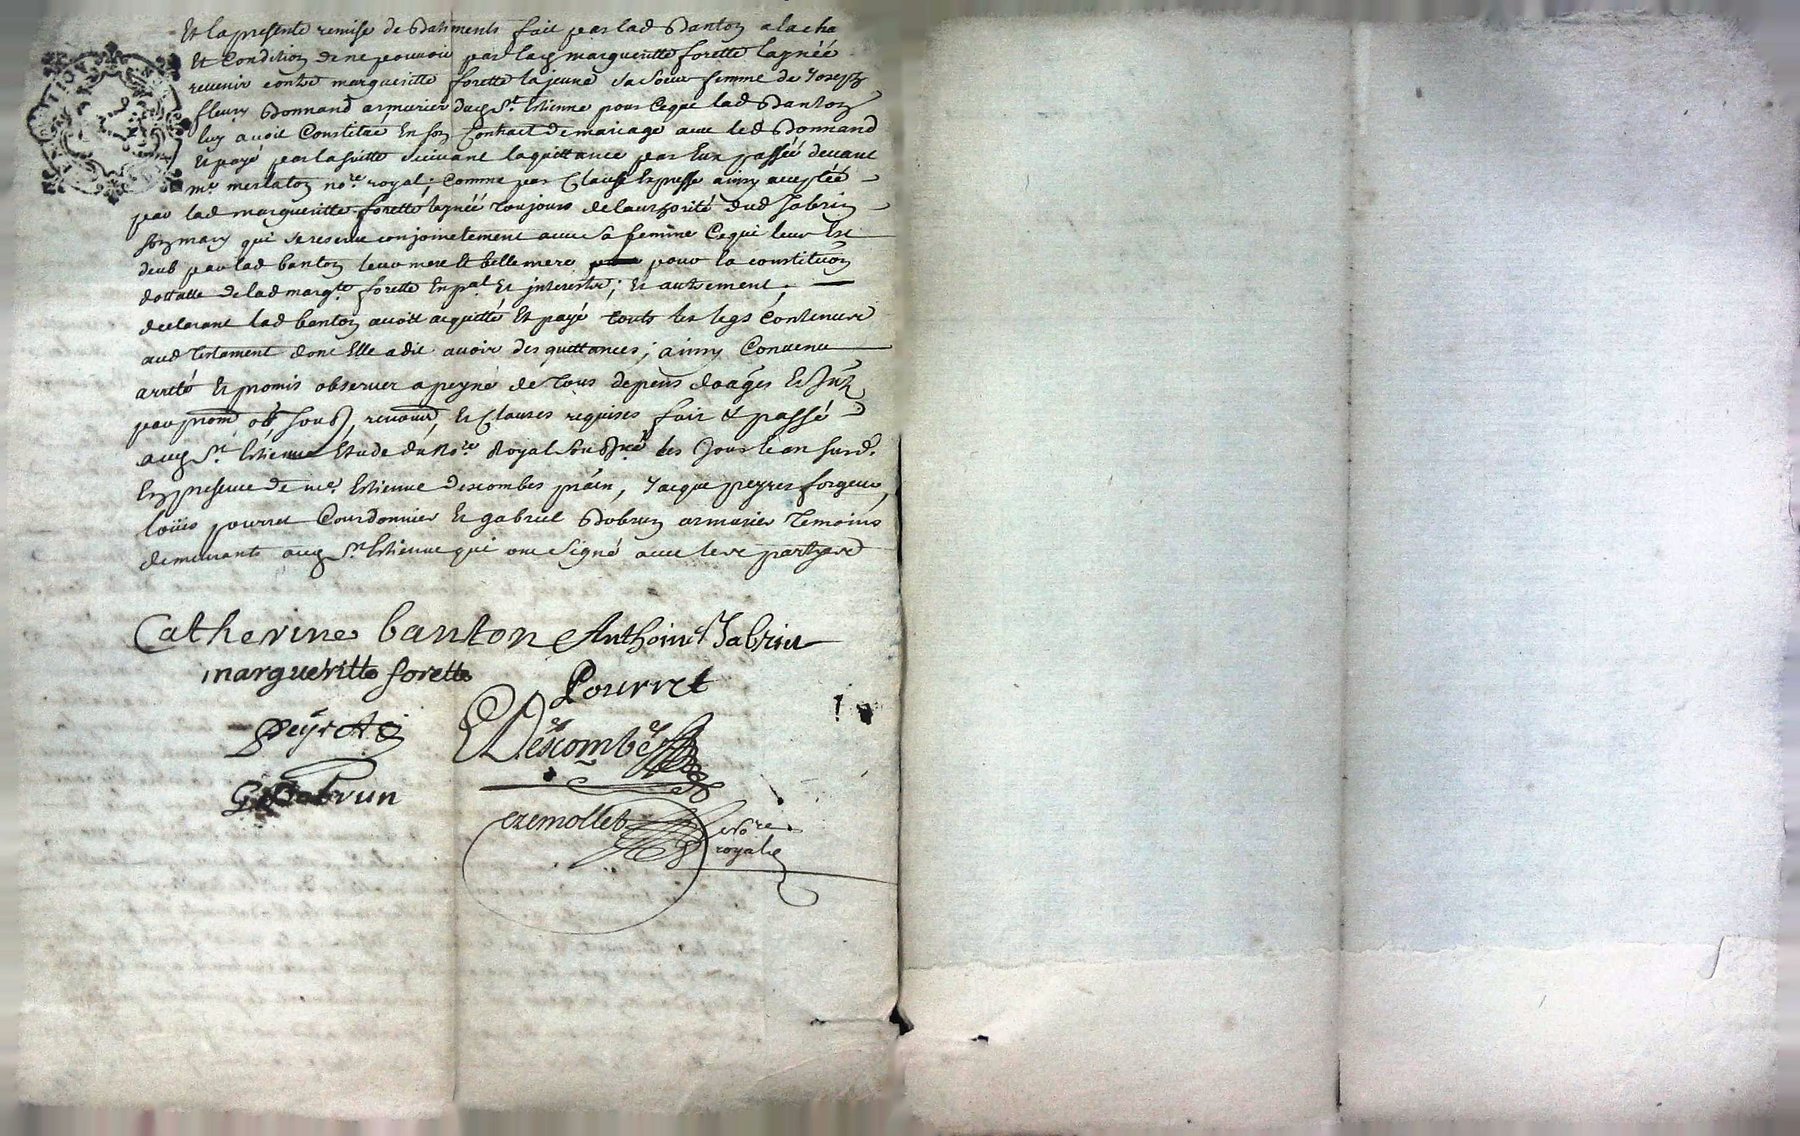 Et la presente remise de Batiments fait par lad Banton a la cha
Et Condition de ne pouvoir par lad margueritte forette laynéé
revenir contre margueritte forette la jeune sa soeur femme de Joseph
fleury Bonnand armurier dud St Estienne pour Ceque lad Banton
luy avoit Constitué En son Contract de mariage avec led Bonnand
Et payé par la suitte suivant la quittance par Eux passéé devant
me merlaton nore royal; Comme par Clause Expresse ainsy acceptéé
par lad margueritte forette laynéé toujours de lauthorité dud Jabrin
son mary qui se reserve conjoinctement avec sa femme Cequi leur Est
deub par lad banton leur mere et belle mere pour la constitution
dottalle de lad margte forette En pal Et interests; Et autrement;
declarant lad banton avoir acquitté Et payé touts les legs Contenus
aud testament dont Elle a dit avoir des quittances; ainsy Convenu
arreté Et promis observer a peyne de tous depens domages Et
par prom, ob, soub, renonc, Et Clauses requises fait & passé
aud St Estienne Etude du Nore Royal soubne les Jour et an susd.
En presence de me. Estienne descombes pratn, Jacque peyret forgeur,
loüis pourret Courdonnier Et gabriel Dobrun armurier temoins
demeurants aud St Estienne qui ont signé avec les partyes
Catherine banton Anthoine Jabrin
margueritte forette
Pourret
Peyret
Descombes
G Dobrun
ezemollet nore
royal